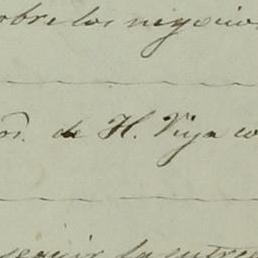 obre los negocio
de H. Vign co
seguir la entre